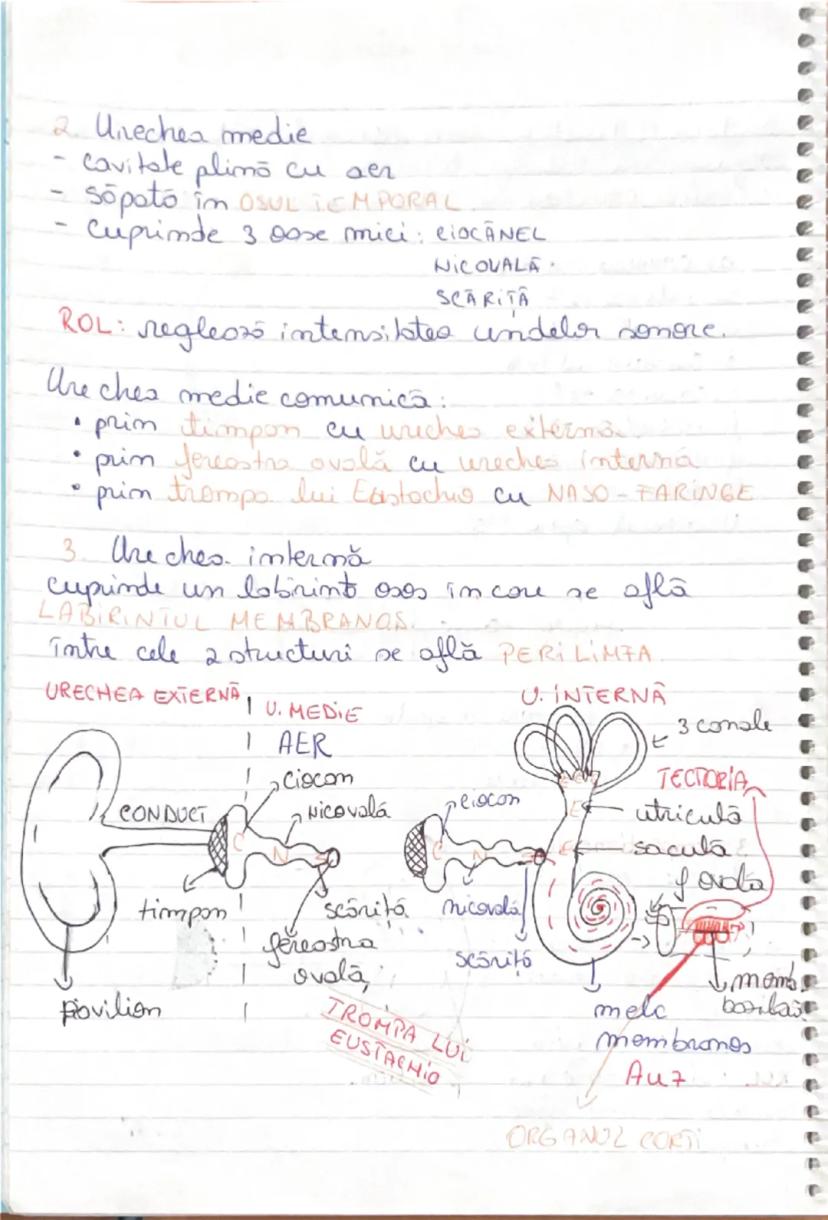 2. Urechea medie
- cavitate plină cu aer
- săpată în OSUL TEMPORAL
- cuprinde 3 oase mici: CIOCĂNEL
NICOVALĂ
SCĂRIȚĂ
ROL: reglează intensitatea undelor sonore.
Urechea medie comunică:
• prin timpan cu urechea externă
• prin fereastra ovală cu urechea internă
• prin trompa lui Eustachio cu NASO-FARINGE
3. Urechea internă
cuprinde un labirint osos în care se află
LABIRINTUL MEMBRANOS.
între cele 2 structuri se află PERILIMFA
URECHEA EXTERNĂ
U. MEDIE
U. INTERNĂ
AER
3 canale
ciocan
TECTORIA
CONDUCT
nicovală
ciocan
utriculă
C
N
S
C
N
S
E
E
saculă
f ovală
timpan
scăriță
nicovală
fereastra
ovală
scăriță
pavilion
melc
membranos
memb.
bazilară
TROMPA LUI
EUSTACHIO
Auz
ORGANUL CORTI